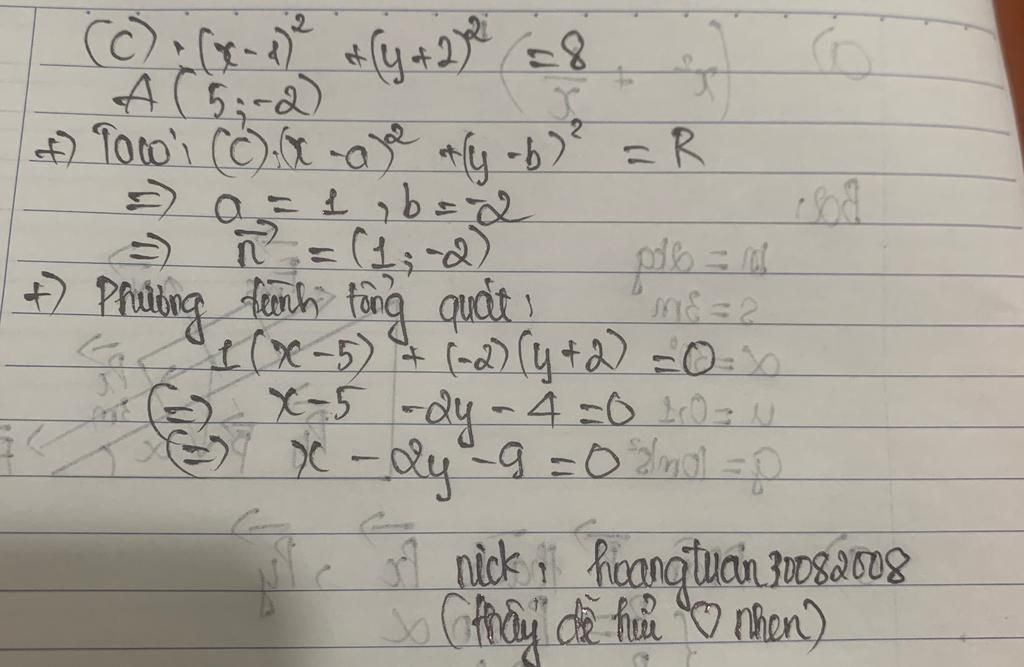 (C): (x-1)² + (y+2)² = 8
A(5;-2)
+) Taco: (C): (x-a)² + (y-b)² = R
=> a = 1, b = -2
=> n⃗ = (1; -2)
+) Phương trình tổng quát:
1(x-5) + (-2)(y+2) = 0
(=) x-5 -2y-4 = 0
(=) x - 2y - 9 = 0
nick: hoangtuan30082008
(thầy để hiủ ♡ nhen)